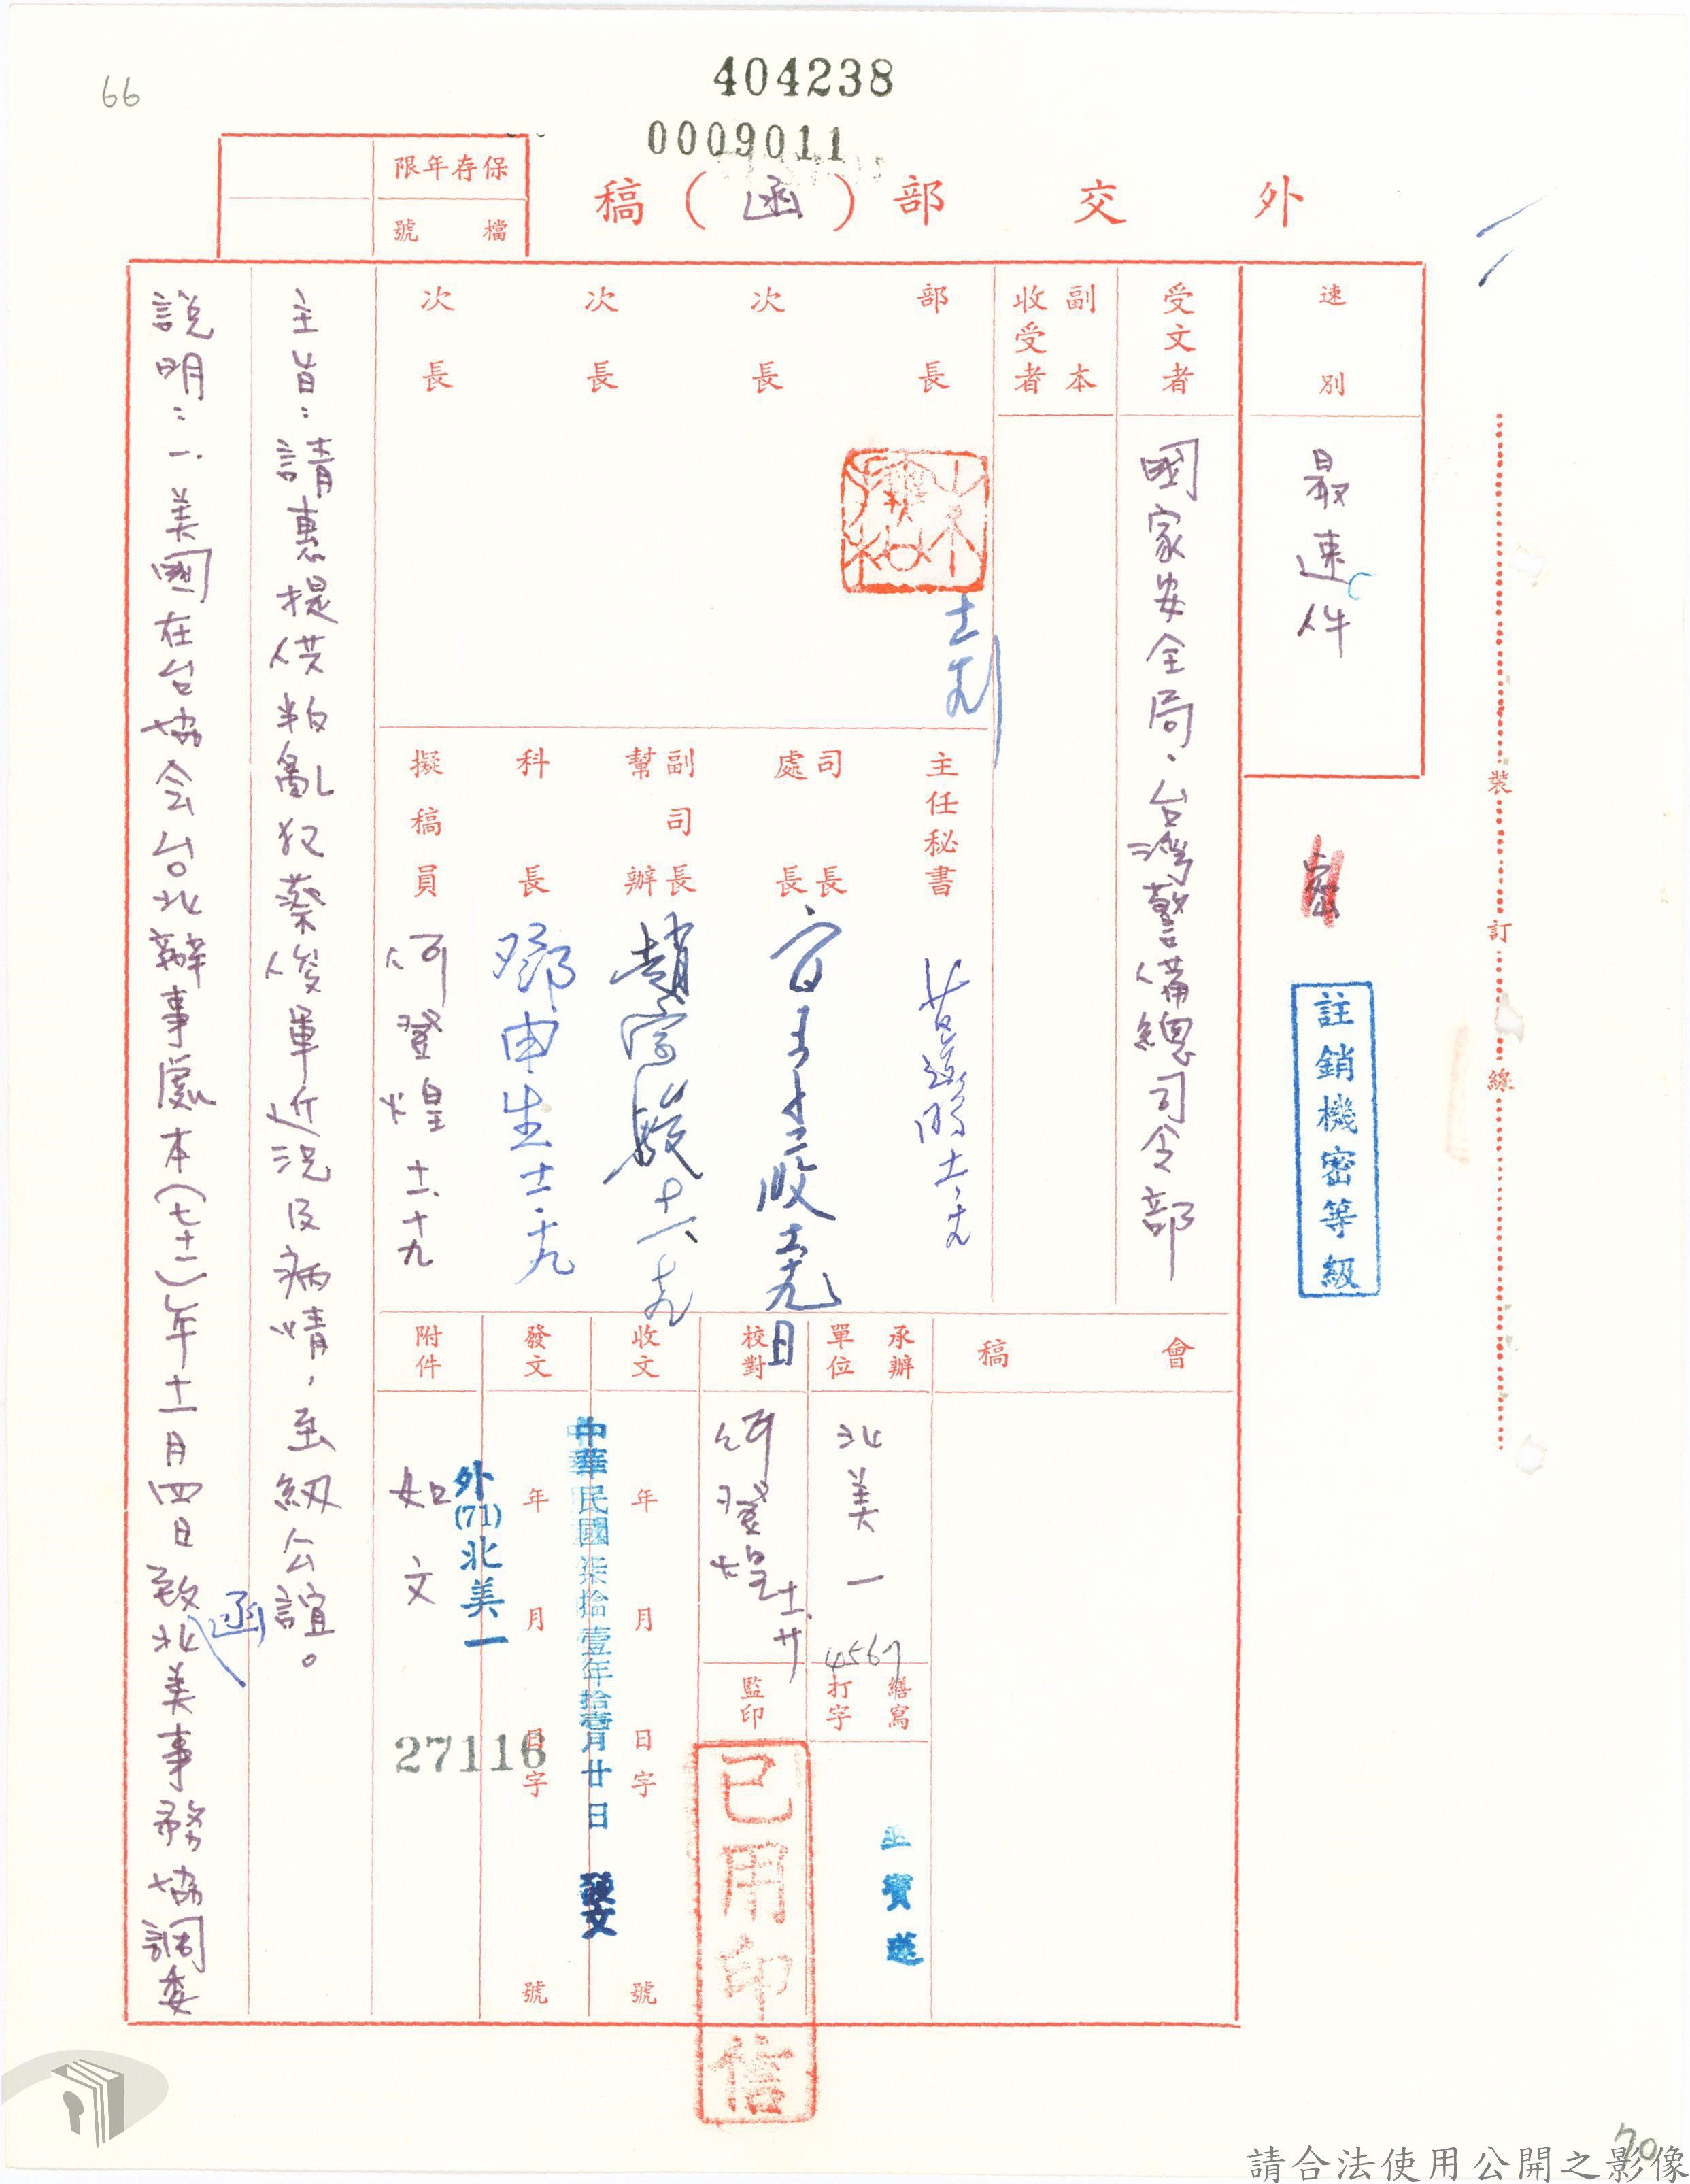 66
404238
0009011
外交部（函）稿
保存年限
檔號
速別
最速件
密
註銷機密等級
裝訂線
受文者
國家安全局、台灣警備總司令部
副本收受者
部長
次長
次長
次長
主任秘書
司長
處長
副司長
幫辦
趙
科長
鄧申生 十一、十九
擬稿員
何登煌 十一、十九
會稿
承辦單位
北美一
4567
繕寫
打字
巫寶蓮
校對
何登煌 十一、廿
監印
已用印信
收文
年月日字號
中華民國柒拾壹年拾壹月廿日 發文
發文
年月日字號
外(71)北美一
27116
附件
如文
主旨：請惠提供叛亂犯蔡俊軍近況及病情，至紉公誼。
說明：一、美國在台協会台北辦事處本(七十一)年十一月四日致北美事務協調委
函
70
請合法使用公開之影像